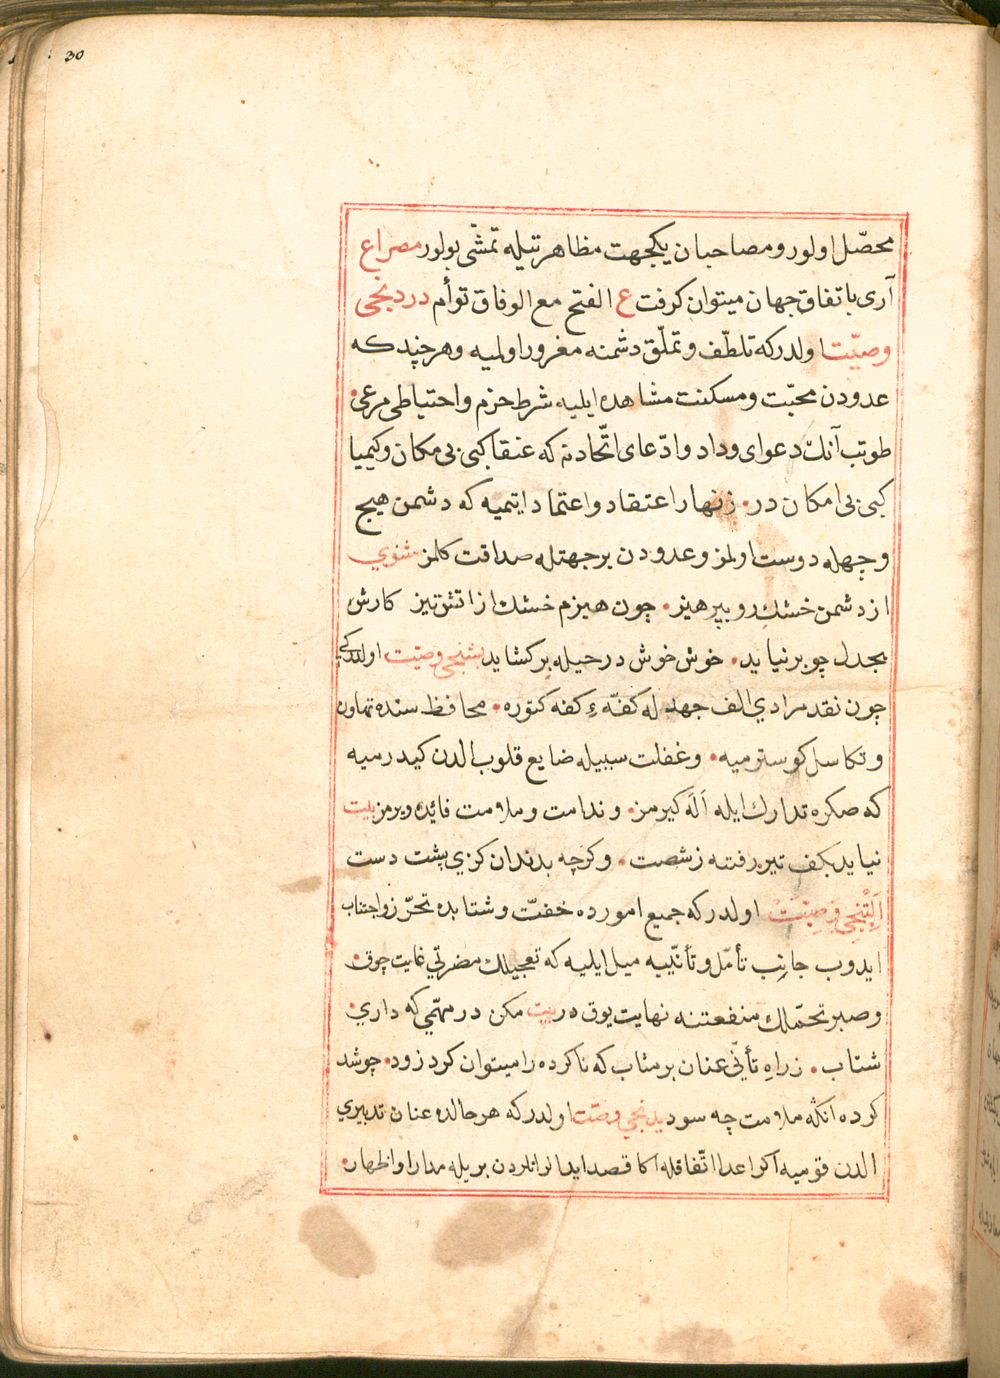 30
محصّل اولور و مصاحبان یکجهت مظاهرتیله تمشّی بولور مصراع
آری باتفاق جهان میتوان کرفت ع الفتح مع الوفاق توأم دردنجی
وصیّت اولدرکه تلطّف و تملّق دشمنه مغرور اولمیه و هر چند که
عدودن محبّت و مسکنت مشاهده ایلیه شرط حزم و احتیاطی مرعی
طوتب آنك دعوای وداد و ادّعای اتّحادنه که عنقا کبی بی مکان و کیمیا
کبی بی امکان در زنهار اعتقاد و اعتماد ایتمیه که دشمن هیچ
وجهله دوست اولمز و عدودن برجهتله صداقت کلمز مثنوی
از دشمن خشك رو بپرهیز چون هیزم خشك از اتش تیز کارش
بجدل چو برنیاید خوش خوش در حیله برکشاید بشنجی وصیّت اولدرکی
چون نقد مرادی الف جهد له کفّهٔ کفه کتوره محافظه سنده تهاون
و تکاسل کوسترمیه و غفلت سببیله ضایع قلوب الدن کیدرمیه
که صکره تدارك ایله اله کیرمز و ندامت و ملامت فائده ویرمز بیت
نیاید بکف تیر رفته ز شصت و کرچه بدندان کزی پشت دست
التنجی وصیّت اولدرکه جمیع امورده خفّت و شتابده تحرّز و اجتناب
ایدوب جانب تأمّل و تأنّییه میل ایلیه که تعجیلك مضرتی غایت چوق
و صبر تحمّلك منفعتنه نهایت یوق در بیت مکن در مهمّی که داری
شتاب ز راه تأنّی عنان بر متاب که ناکرده را میتوان کرد زود چو شد
کرده انکه ملامت چه سود یدنجی وصیّت اولدرکه هر حالده عنان تدبیری
الدن قومیه اکر اعدا اتّفاقله اکا قصد ایدلر انلردن بریله مدارا و اظهار